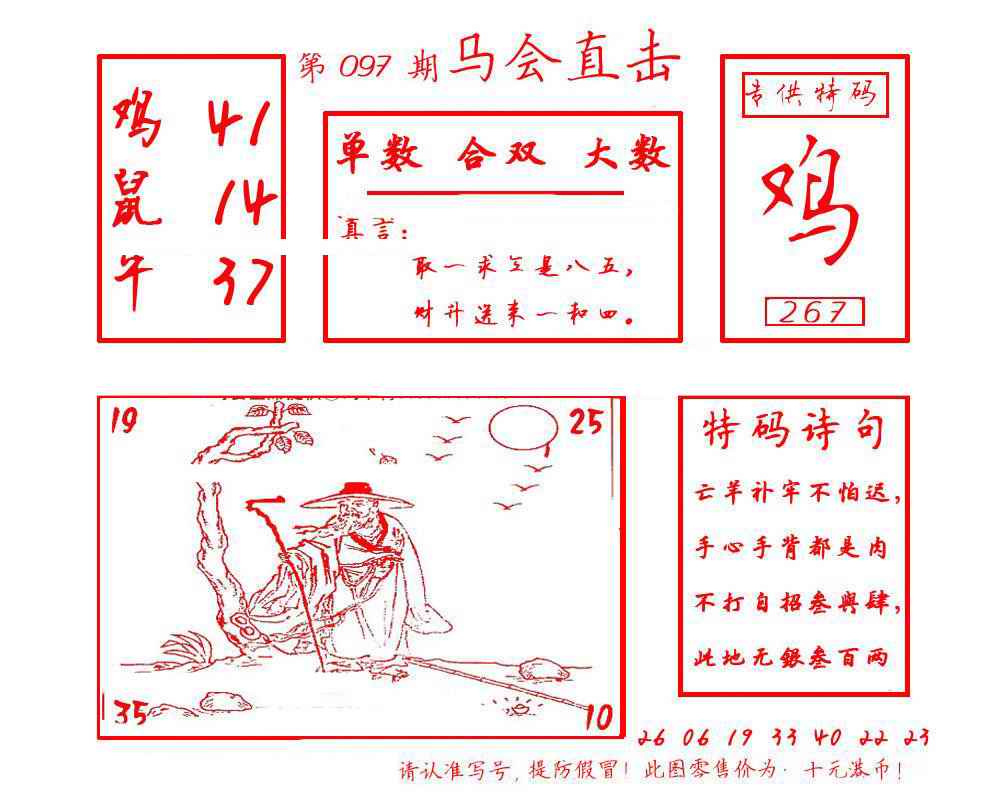 第 097 期 马会直击
鸡 41
鼠 14
牛 37
单数 合双 大数
真言:
取一求三是八五,
财升送来一和四。
专供特码
鸡
267
19
25
35
10
特码诗句
亡羊补牢不怕迟,
手心手背都是肉
不打自招叁與肆,
此地无银叁百两
26 06 19 33 40 22 23
请认准写号,提防假冒!此图零售价为·十元港币!